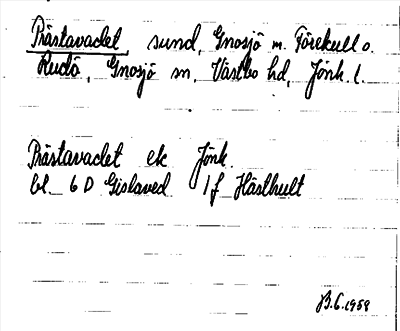 Prästavadet, sund, Gnosjö m. Törekull o.
Rudö, Gnosjö sn, Västbo hd, Jönk. l.
Prästavadet ek Jönk.
bl. 6 D Gislaved 1 f Hästhult
B.G. 1958